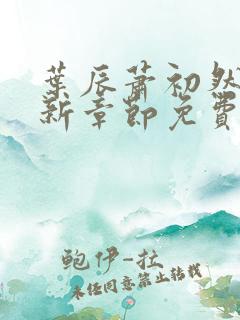 葉辰蕭初然
新章節免費
鮑伊-拉
未經同意禁止轉載